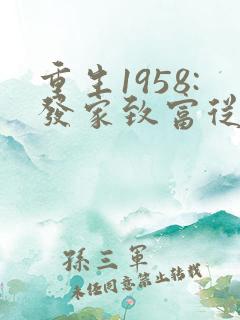 重生1958:
發家致富從
孫三軍
未經同意禁止轉載